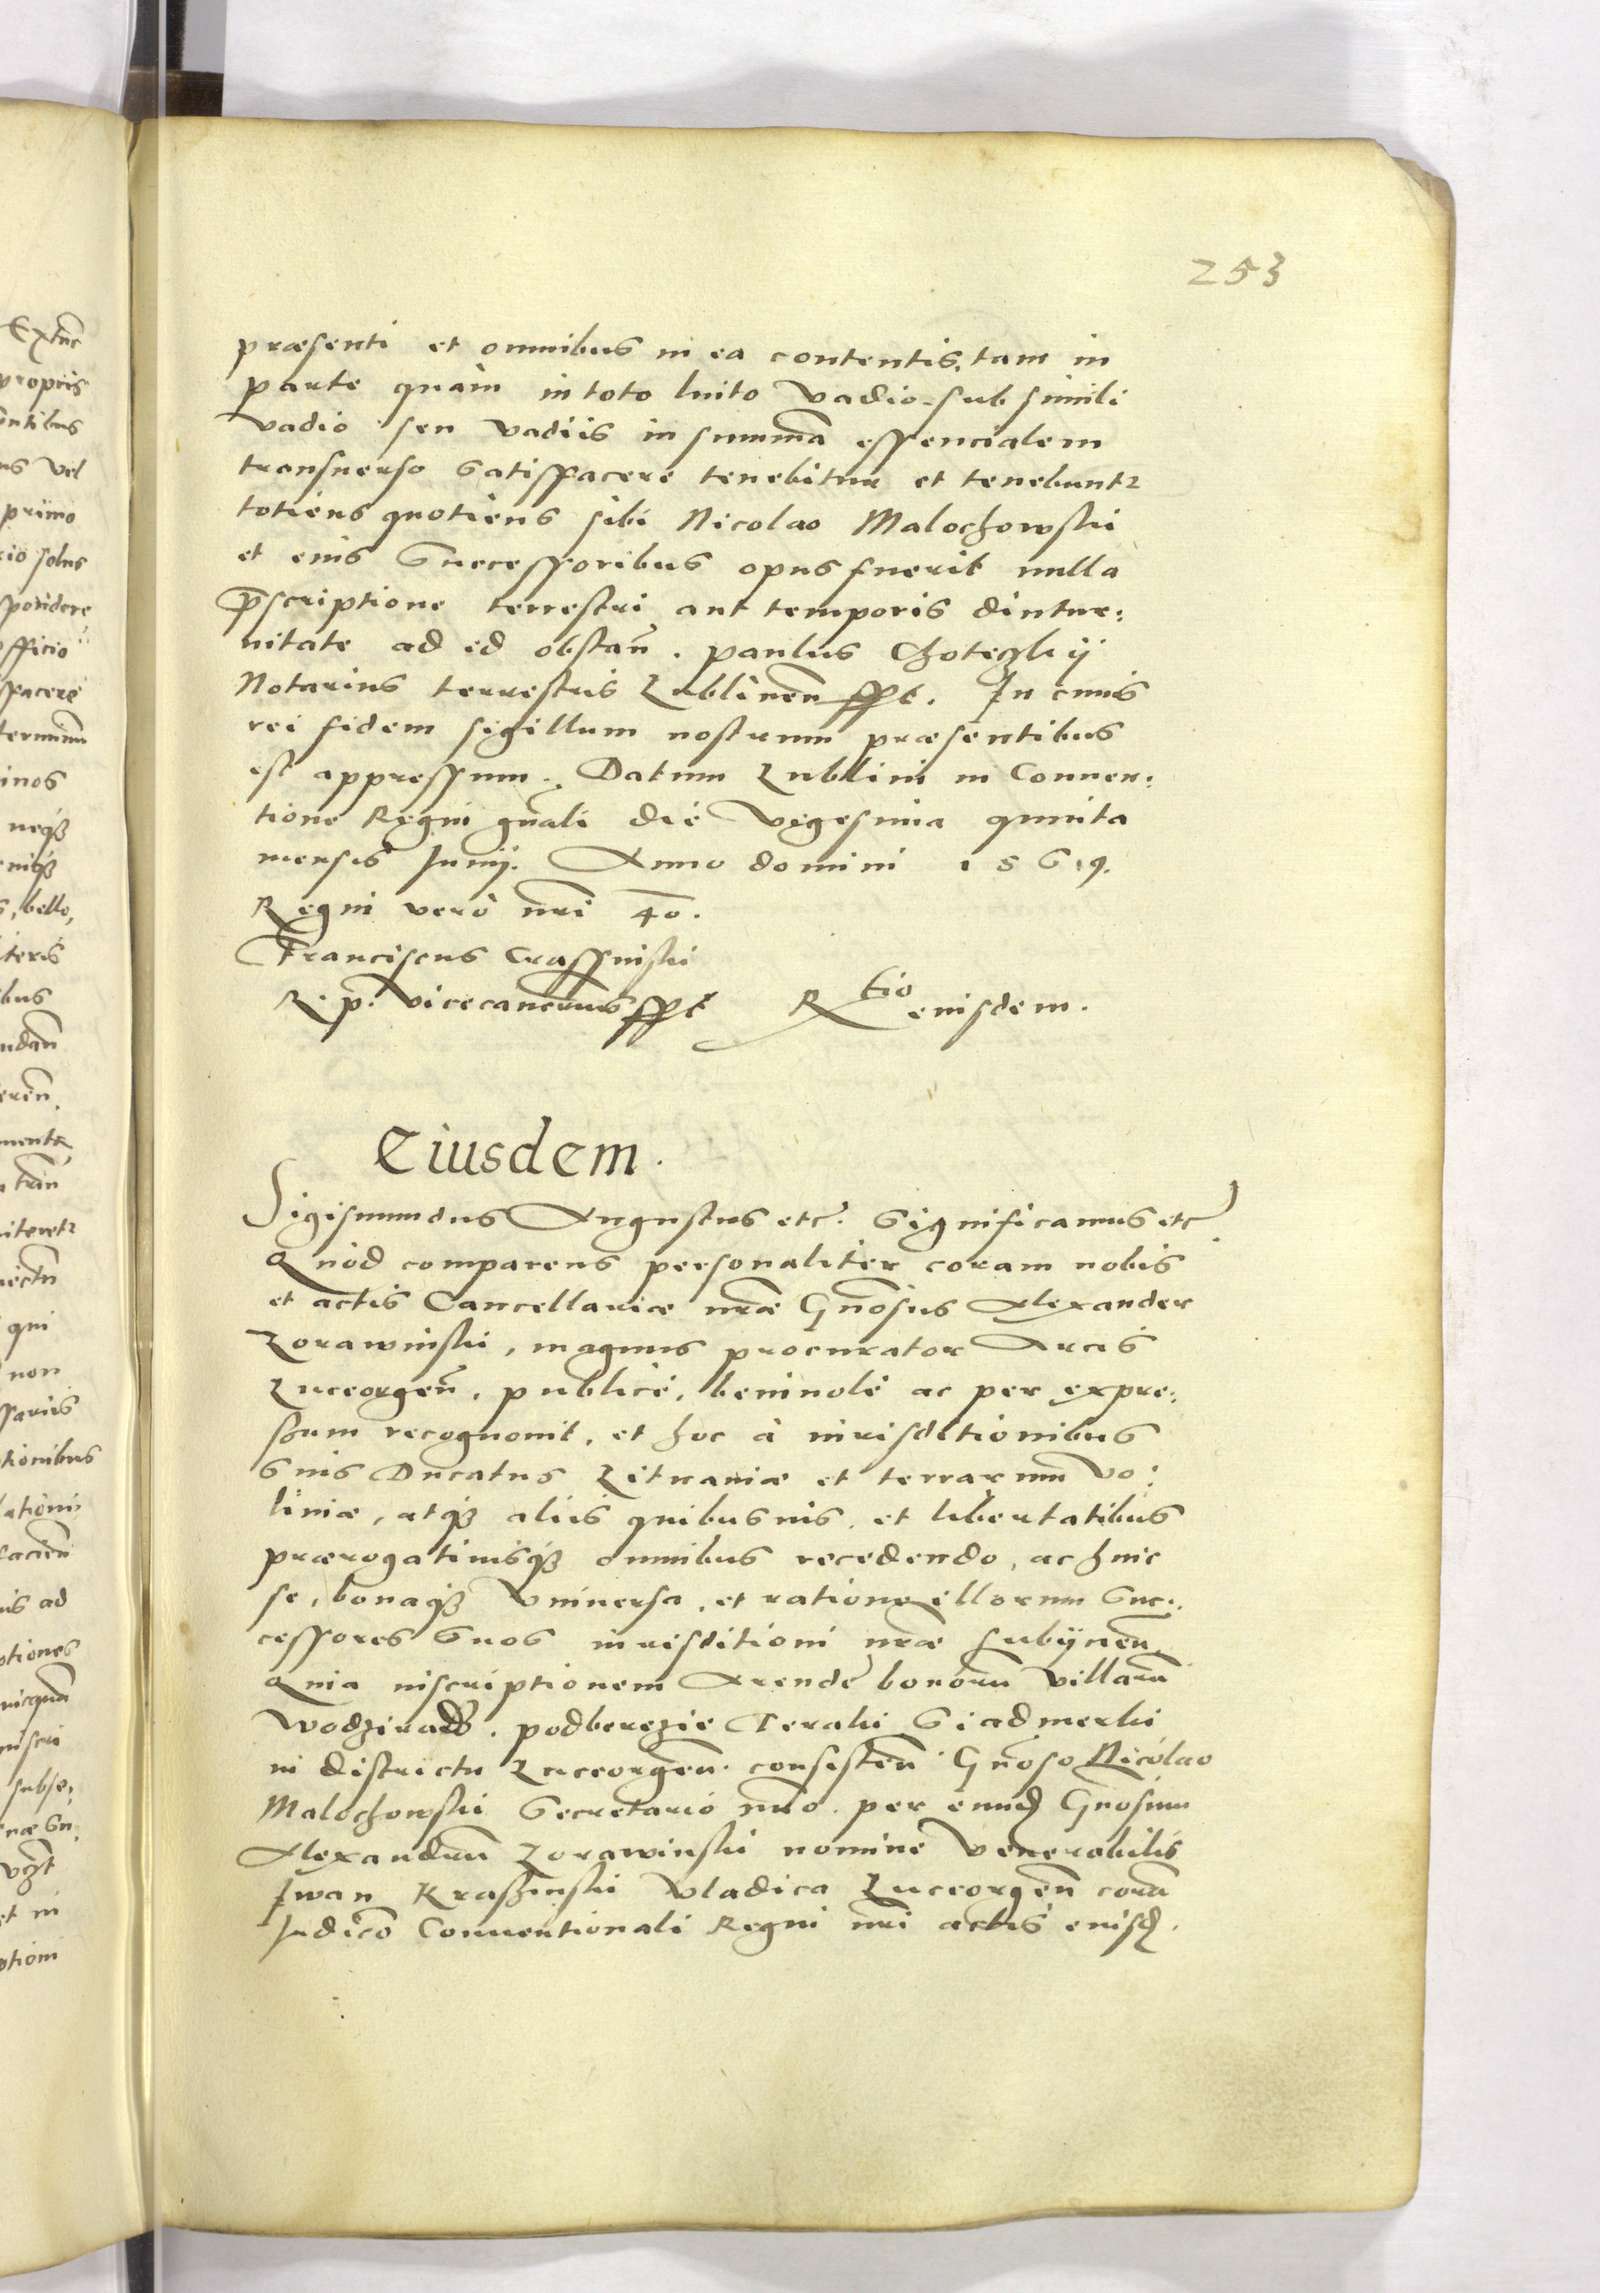 253
præsenti et omnibus in ea contentis, tam in
parte quàm in toto luito vadio sub simili
vadio seu vadiis in summã essencialem
transuerso satisfacere tenebitur et tenebuntr
totiens quotiens sibi Nicolao Malochowski
et eius successoribus opus fuerit nulla
p̃scriptione terrestri aut temporis diutur:
nitate ad id obstañ. Paulus Choteczkij
Notarius terrestris Lublineñ sspt. In cuius
rei fidem sigillum nostrum præsentibus
est appressum. Datum Lublini in Conuen:
tione Regni gñali die vigesima quinta
mensis Junij. Anno domini 1569.
Regni verò nr̃i 40.
Franciscus Crassinski
R. p. vicecancrius sspt Rtio eiusdem.
Eiusdem.
Sigismundus Augustus etc. significamus etc
Quod comparens personaliter coram nobis
et actis Cancellariæ nr̃æ Gñosus Alexander
Zorawinski, magnus procurator Arcis
Luceorgeñ, publicè, beniuolè ac per expre:
ssum recognouit, et hoc à iurisditionibus
suis Ducatus Lituaniæ et terrarum Vo:
liniæ, atqȝ aliis quibusuis, et libertatibus
prærogatiuisqȝ omnibus recedendo, ac huic
se, bonaqȝ vniuersa, et ratione illorum suc:
cessores suos iurisditioni nr̃æ subijcieñ
Quia inscriptionem Arendę bonorũ villarũ
podberezie Teraki Siadmerki
in districtu Luceorgeñ. consisteñ Gñoso Nicolao
Malochowski Secretario nr̃o. per eund Gñosum
Alexandrum Zorawinski nomine Venerabilis
Iwan Kraszinski Vladica Luceorgeñ corã
Judicio Conuentionali Regni nr̃i actis eiusd.